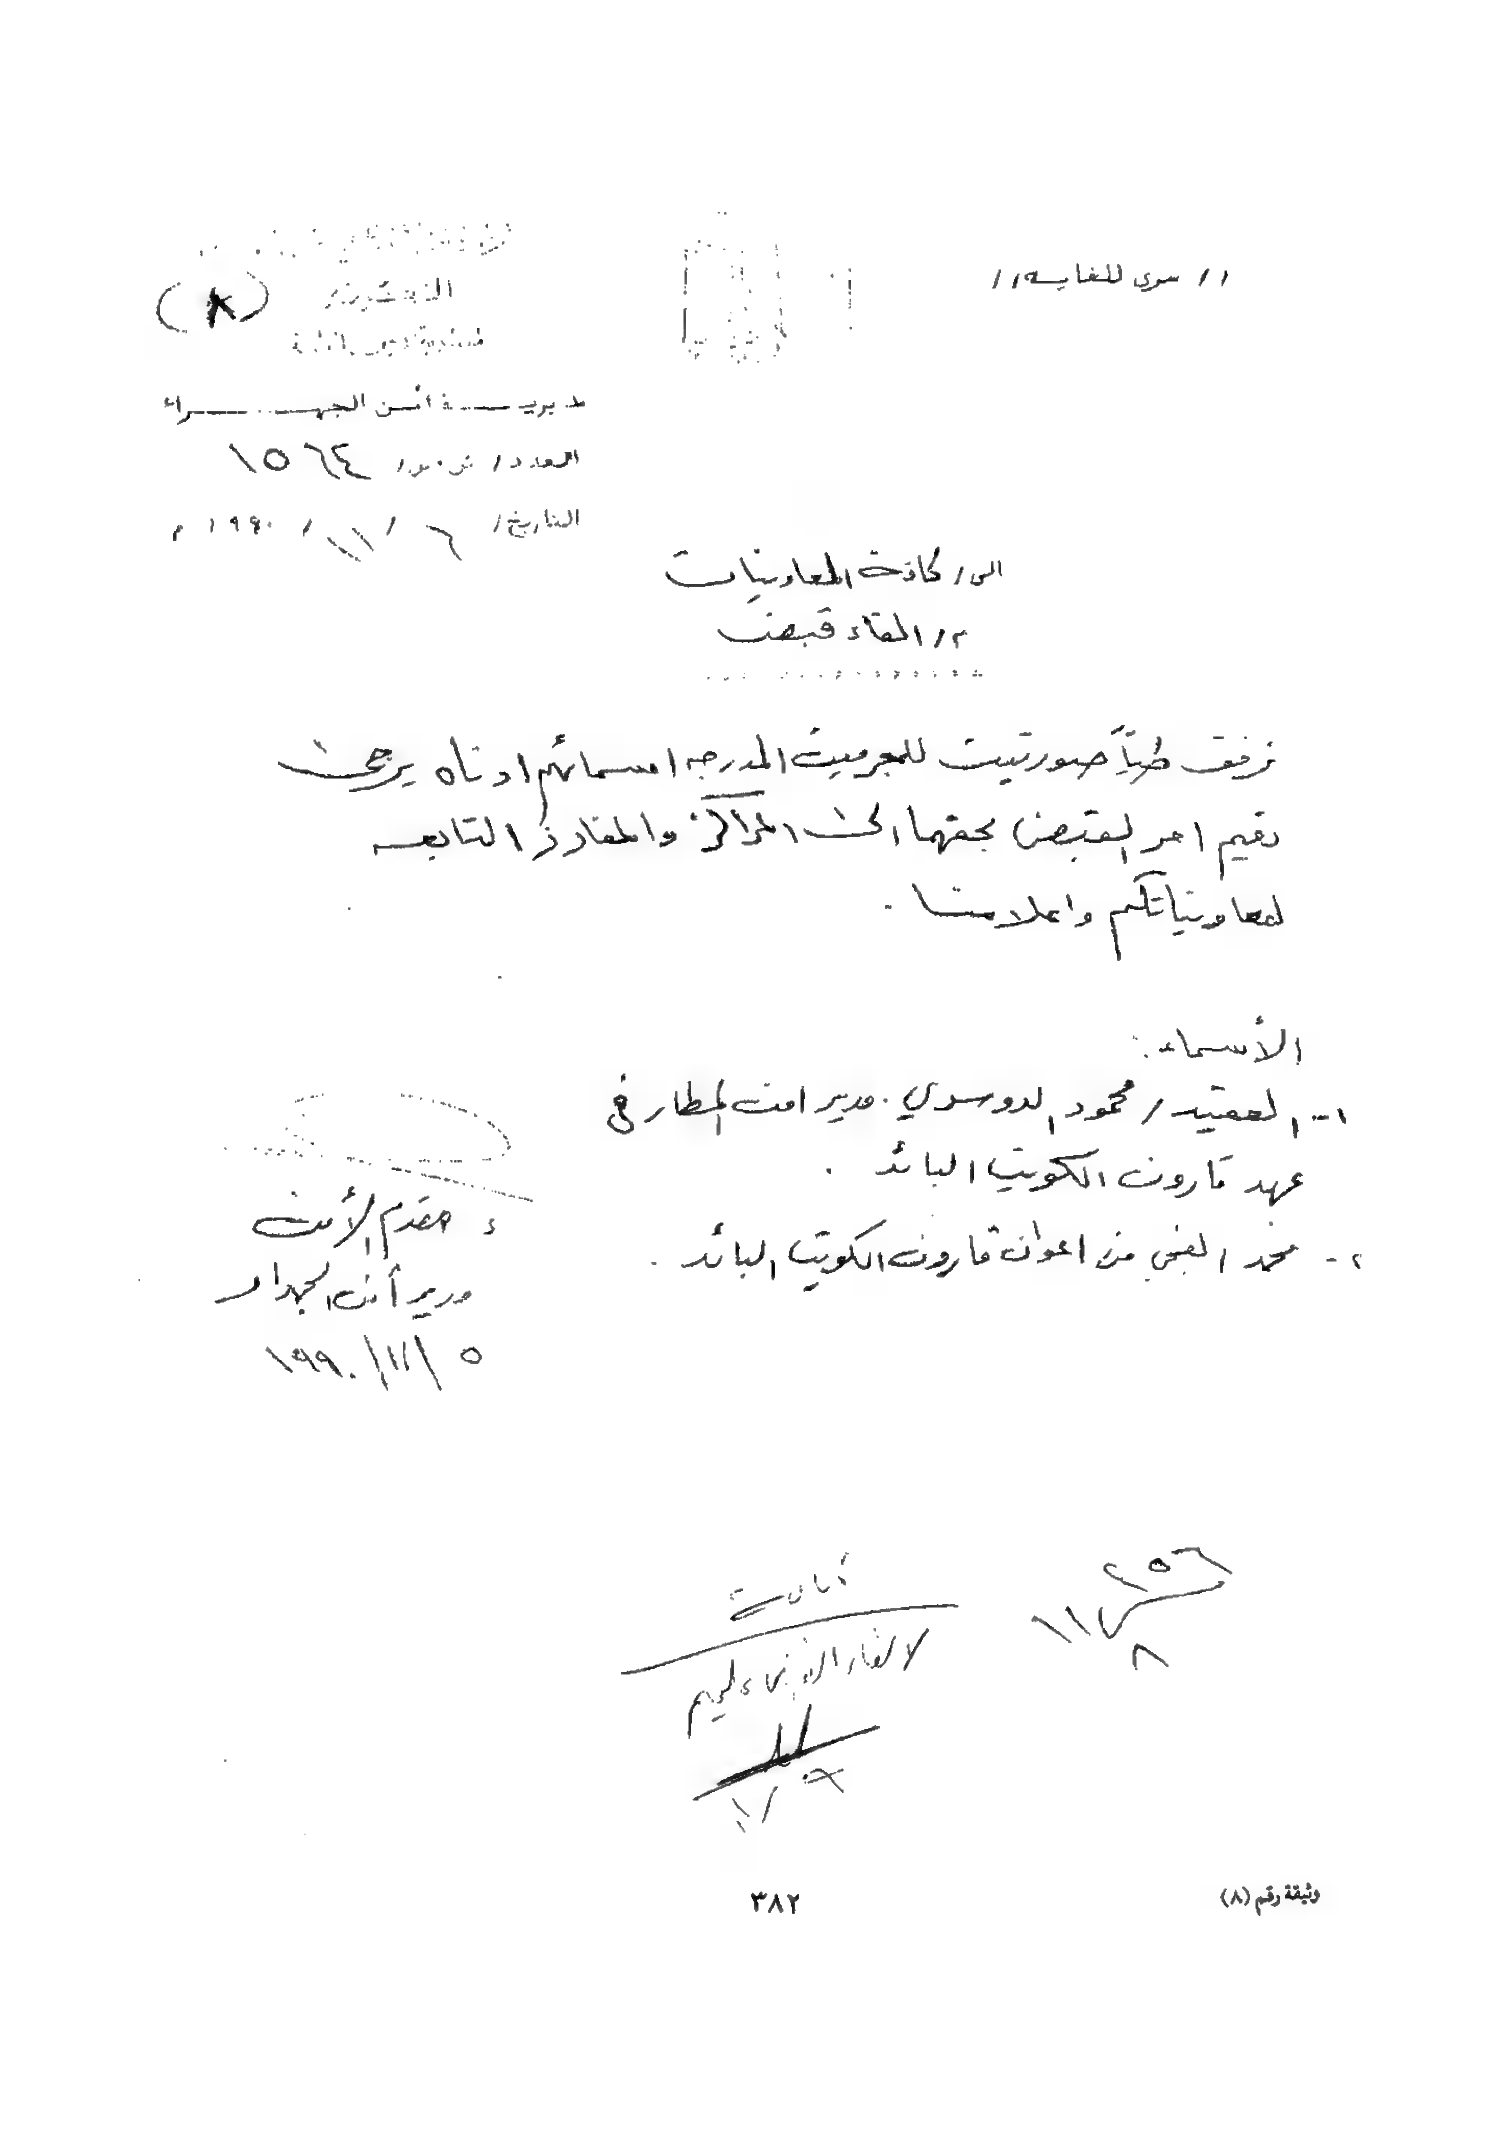 // سري للغايه //
(٨)
مديريـــة أمن الجهـــراء
العدد / ش.س / ١٥٦٤
التاريخ / ٦ / ١١ / ١٩٩٠ م
الى / كافة المعاونيات
م / القاء قبض
نرفق طياً صورتين للمجرمين المدرجه اسمائهم ادناه يرجى
تعميم امر القبض بحقهما الى المراكز والمفارز التابعه
لمعاونياتكم واعلامنا .
الأسماء :
١- العقيد / محمود الدوسري . مدير امن المطار في
عهد قارون الكويت البائد .
٢- محمد الفجي من اعوان قارون الكويت البائد .
مقدم الأمن
مدير أمن الجهراء
٥ / ١١ / ١٩٩٠
٢٥٦
١١/٨
لالقاء القبض عليهم
وثيقة رقم (٨)
٣٨٢